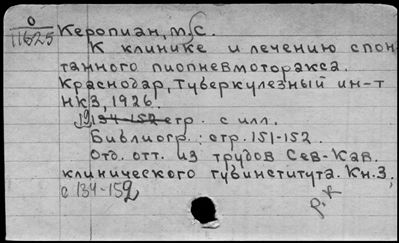 О
11625
Керопиан, т/с.
К клинике и лечению спон
танного пиопневмоторакса.
Краснодар, Туберкулезный ин-т
НКЗ, 1926.
19 134-152 стр. с илл.
Библиогр.: стр. 151-152.
Отд. отт. из трудов Сев-Кав.
клинического тубинститута. Кн. 3,
с 134-152